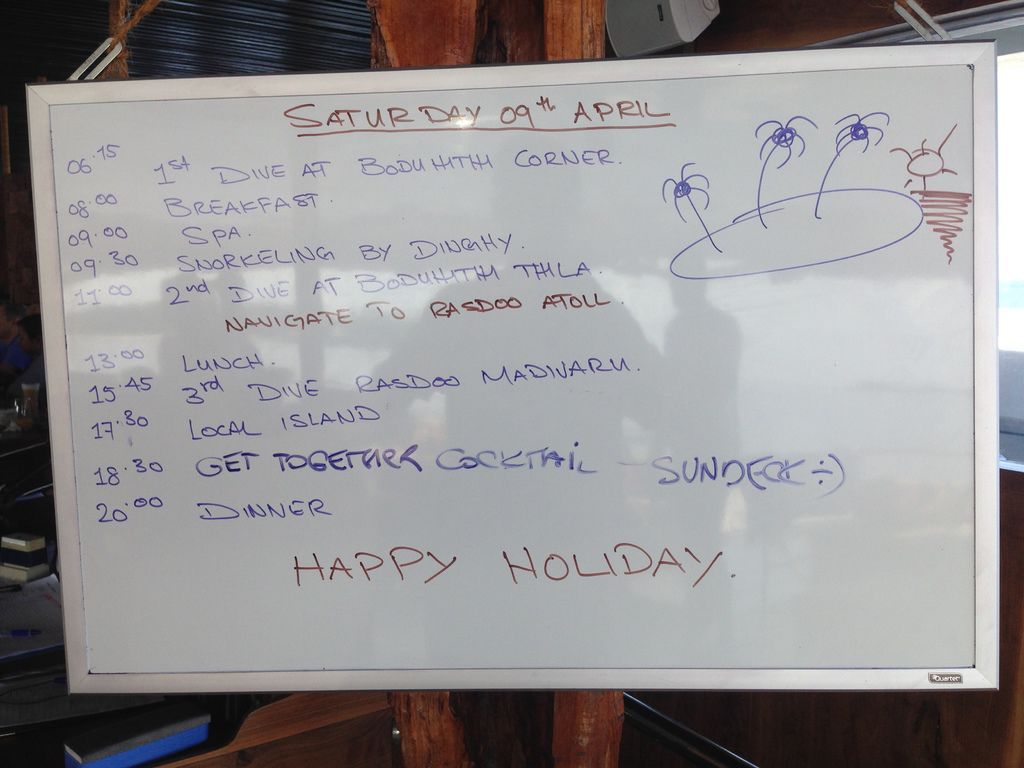 SATURDAY 09th APRIL
06.15 1st DIVE AT BODUHITHI CORNER.
08.00 BREAKFAST.
09.00 SPA.
09.30 SNORKELING BY DINGHY.
11.00 2nd DIVE AT BODUHITHI THILA.
NAVIGATE TO RASDOO ATOLL.
13.00 LUNCH.
15.45 3rd DIVE RASDOO MADIVARU.
17.30 LOCAL ISLAND
18.30 GET TOGETHER COCKTAIL - SUNDECK ÷)
20.00 DINNER
HAPPY HOLIDAY.
Quartet